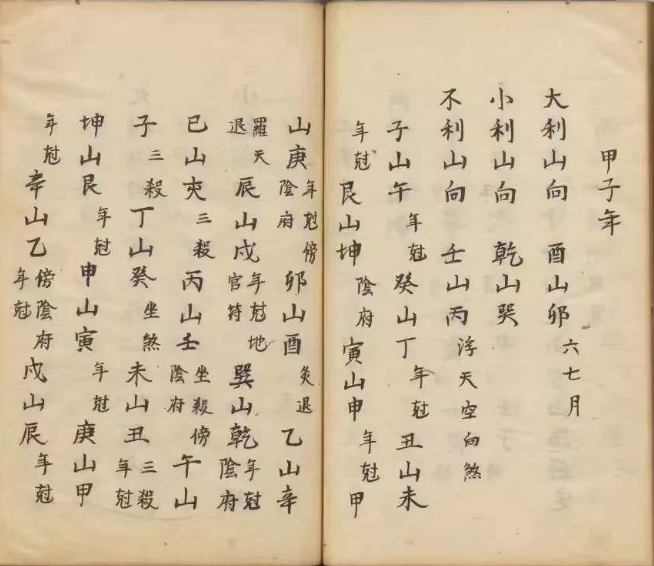 甲子年
大利山向 酉山卯 六七月
小利山向 乾山巽
不利山向 壬山丙 浮天空向煞
子山午 年尅 癸山丁 年尅 丑山未
年尅 艮山坤 陰府 寅山申 年尅 甲
山庚 年尅傍陰府 卯山酉 灸退 乙山辛
羅天退 辰山戌 年尅地官符 巽山乾 年尅陰府
巳山亥 三殺 丙山壬 坐殺傍陰府 午山
子 三殺 丁山癸 坐煞 未山丑 三殺年尅
坤山艮 年尅 申山寅 年尅 庚山甲
年尅 辛山乙 傍陰府年尅 戌山辰 年尅